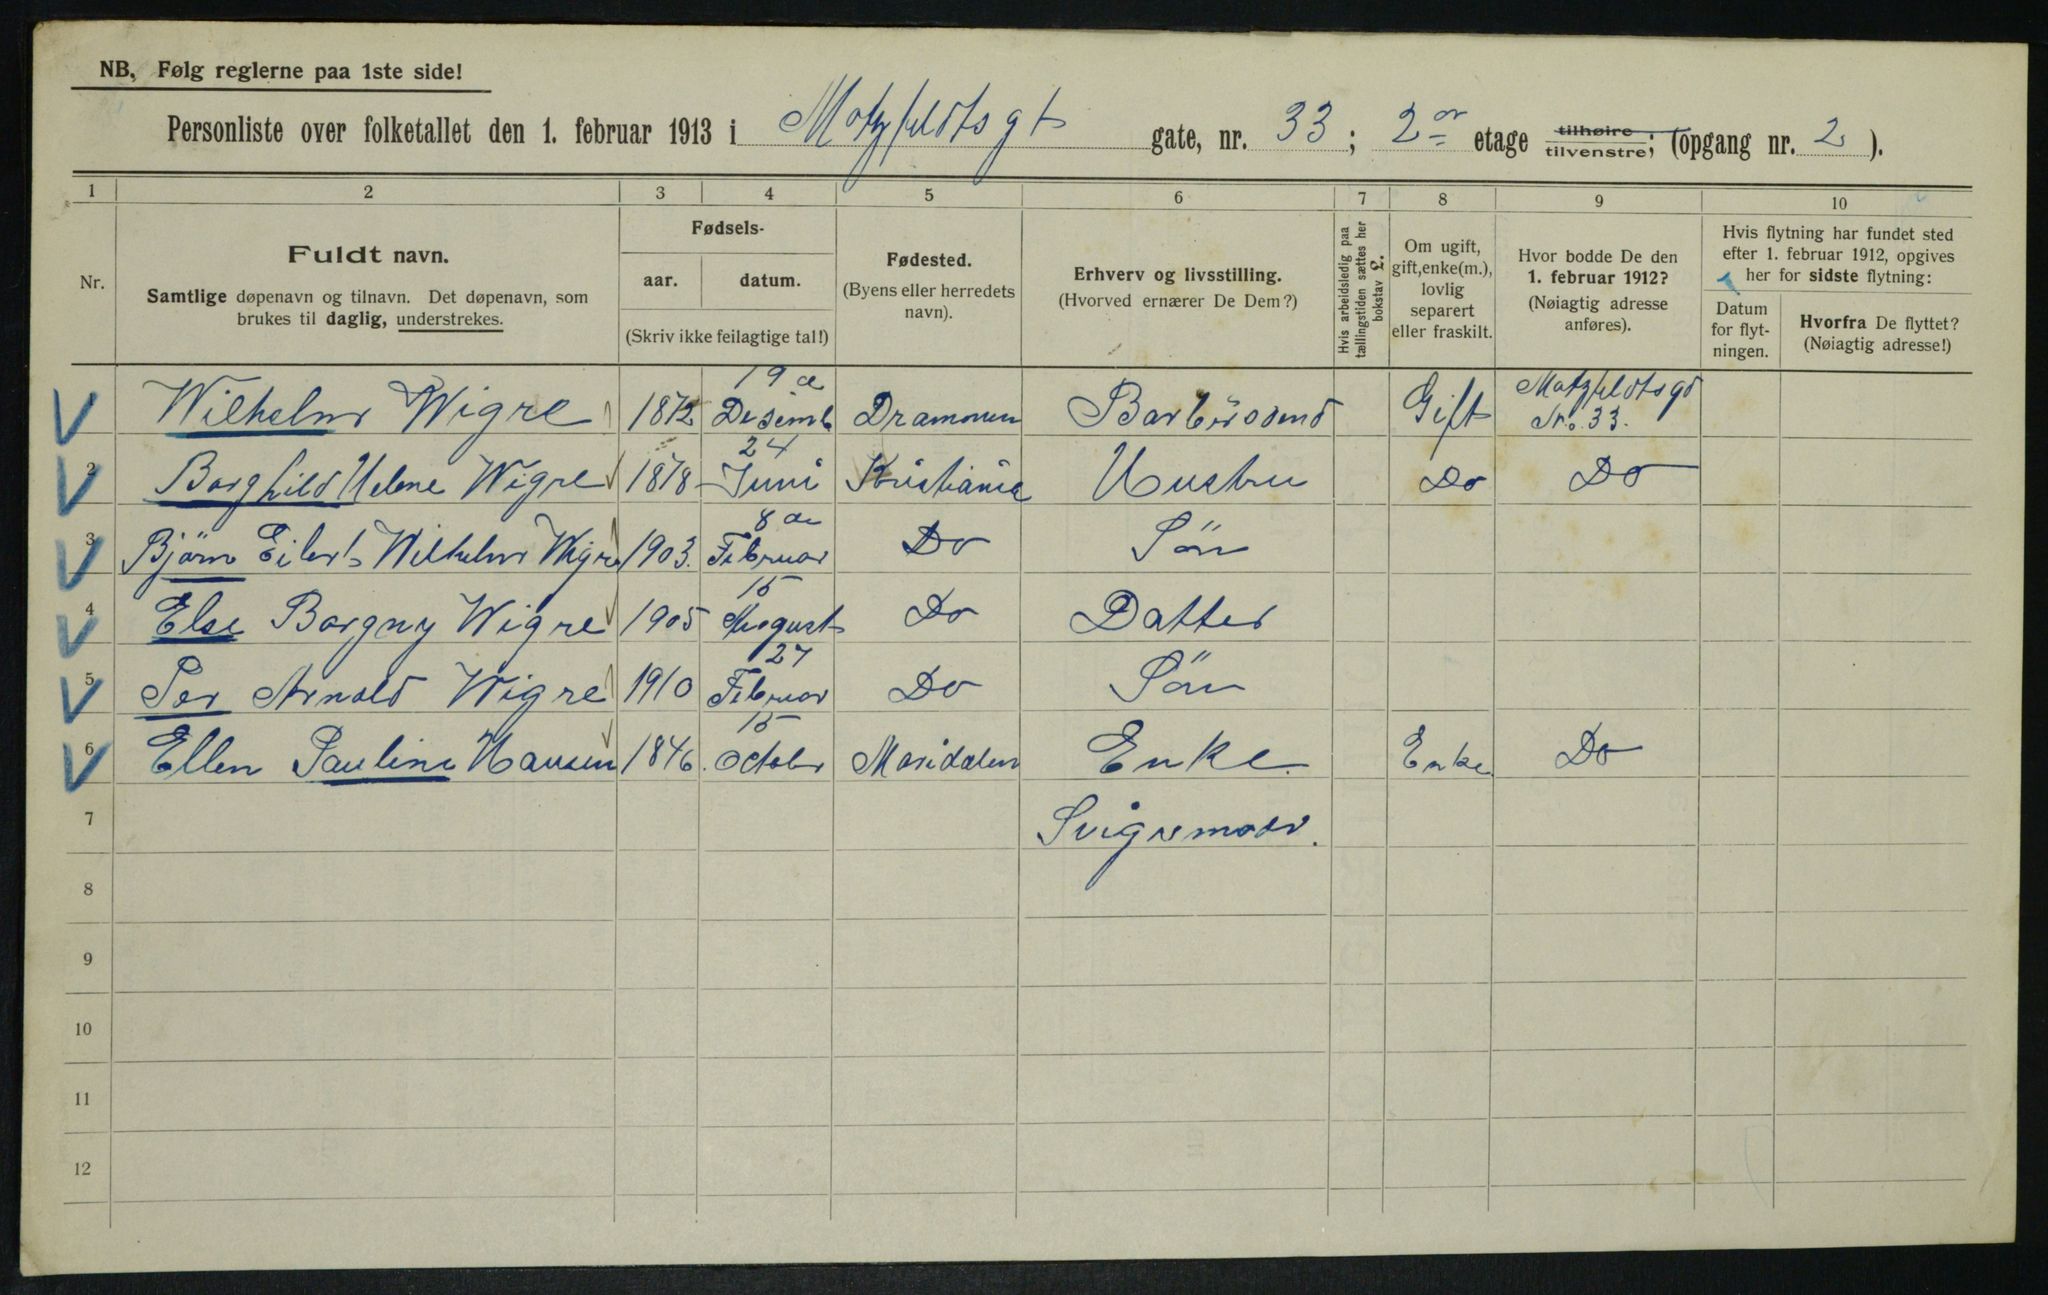 NB, Følg reglerne paa 1ste side!
Personliste over folketallet den 1. februar 1913 i Motzfeldtsgt gate, nr. 33; 2en etage tilhøire tilvenstre; (opgang nr. 2).
1 2 3 4 5 6 7 8 9 10
Nr.
Fuldt navn.
Samtlige døpenavn og tilnavn. Det døpenavn, som
brukes til daglig, understrekes.
Fødsels-
aar. datum.
(Skriv ikke feilagtige tal!)
Fødested.
(Byens eller herredets
navn).
Erhverv og livsstilling.
(Hvorved ernærer De Dem?)
Hvis arbeidsledig paa
tællingstiden sættes her
bokstav L.
Om ugift,
gift, enke(m.),
lovlig
separert
eller fraskilt.
Hvor bodde De den
1. februar 1912?
(Nøiagtig adresse
anføres).
Hvis flytning har fundet sted
efter 1. februar 1912, opgives
her for sidste flytning:
Datum
for flyt-
ningen.
Hvorfra De flyttet?
(Nøiagtig adresse!)
Wilhelm Wigre 1872 19de Desemb Drammen Barbersvend Gift Motzfeldtsgd No. 33.
2 Borghild Helene Wigre 1878 24 Juni Kristiania Hustru Do Do
3 Bjørn Eilert Wilhelm Wigre 1903. 8de Februar Do Sön
4 Else Borgny Wigre 1905 15 August Do Datter
5 Per Arnold Wigre 1910 27 Februar Do Sön
6 Ellen Pauline Hansen 1846. 15 October Maridalen Enke Enke Do
7 Svigremoder.
8
9
10
11
12